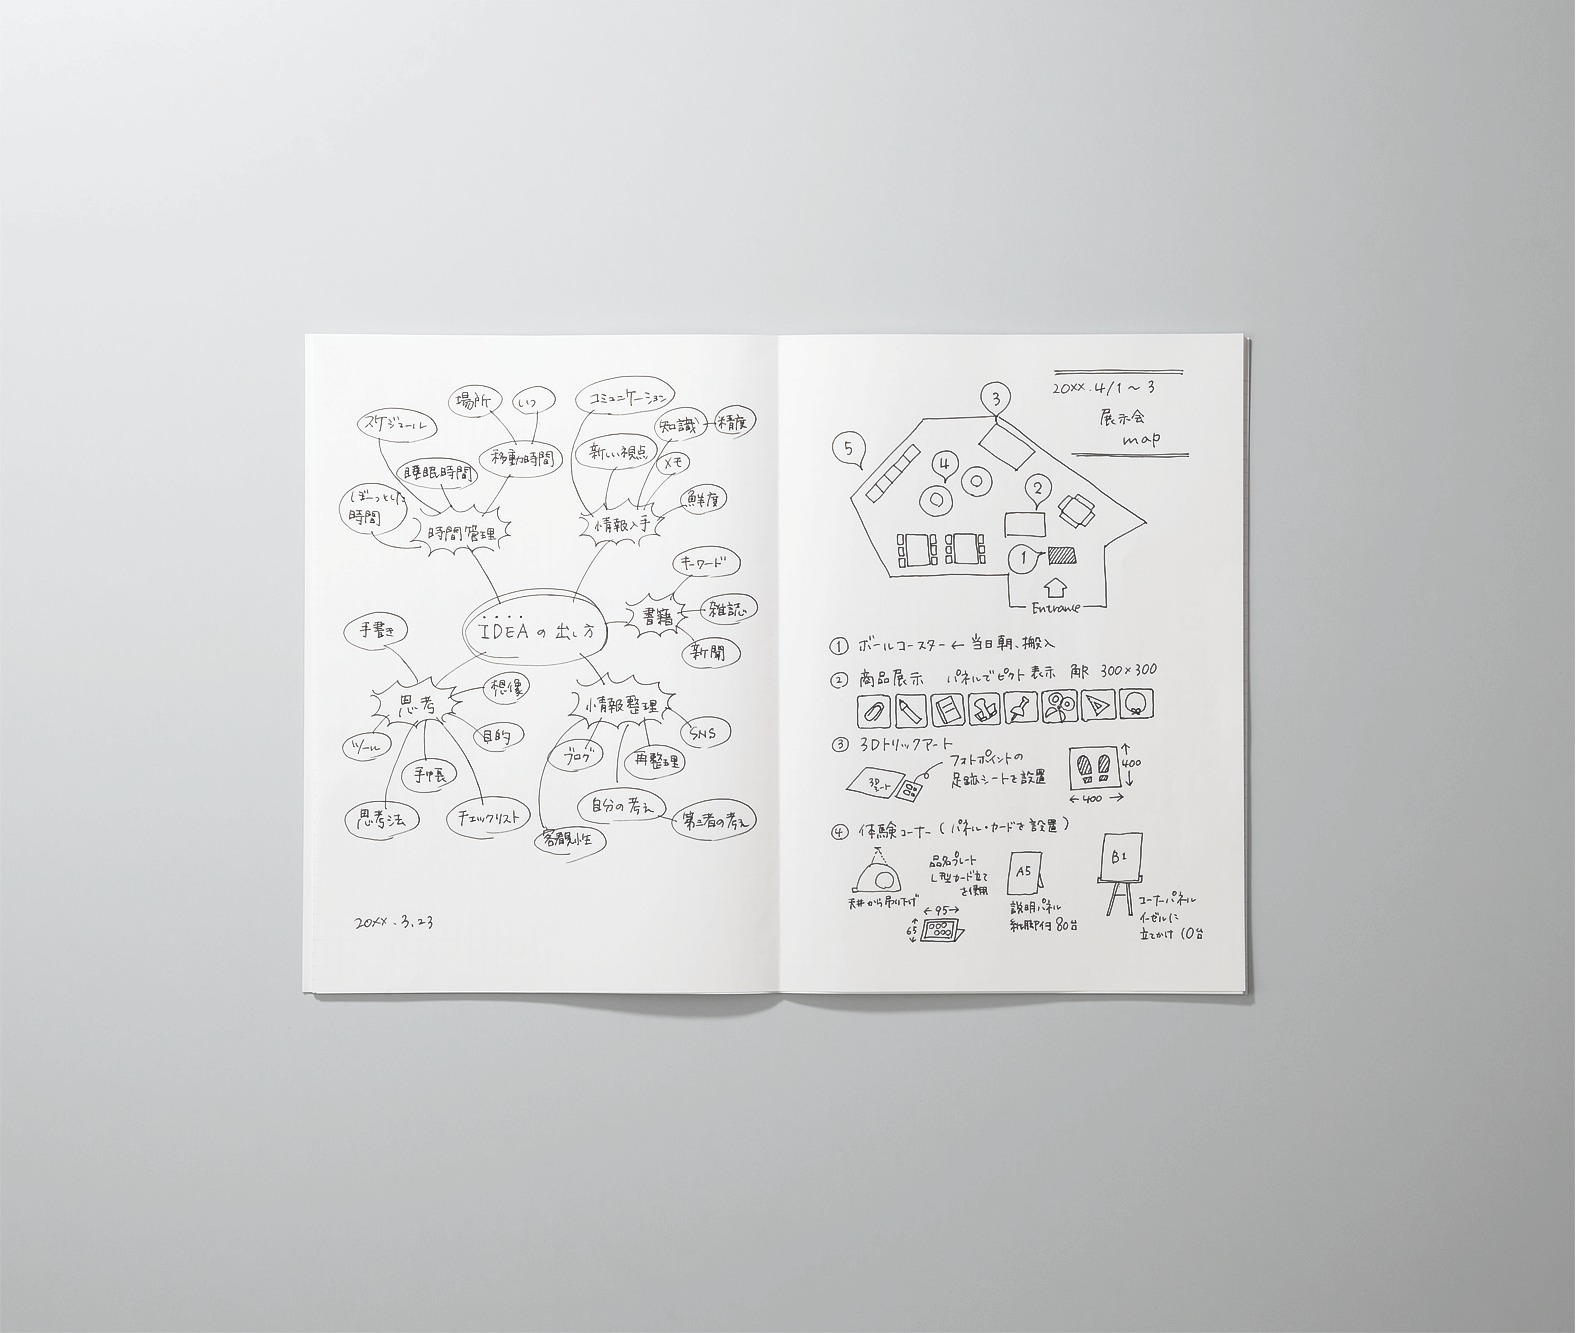 場所
いつ
コミュニケーション
スケジュール
知識
精度
新しい視点
移動時間
メモ
睡眠時間
ぼーっとした
時間
鮮度
時間管理
情報入手
キーワード
書籍
雑誌
IDEAの出し方
手書き
新聞
想像
思考
情報整理
目的
SNS
ツール
ブログ
再整理
手帳
自分の考え
思考法
チェックリスト
第三者の考え
客観性
20xx.3.23
20xx.4/1~3
展示会
map
3
5
4
2
1
Entrance
① ボールコースター ← 当日朝、搬入
② 商品展示 パネルでピクト表示 角R 300×300
③ 3Dトリックアート
フォトポイントの
足跡シートを設置
3D
シート
400
400
④ 体験コーナー(パネル・カードを設置)
天井から吊り下げ
品名プレート
L型カード立て
を使用
95
65
A5
説明パネル
紙脚付 80台
B1
コーナーパネル
イーゼルに
立てかけ 10台